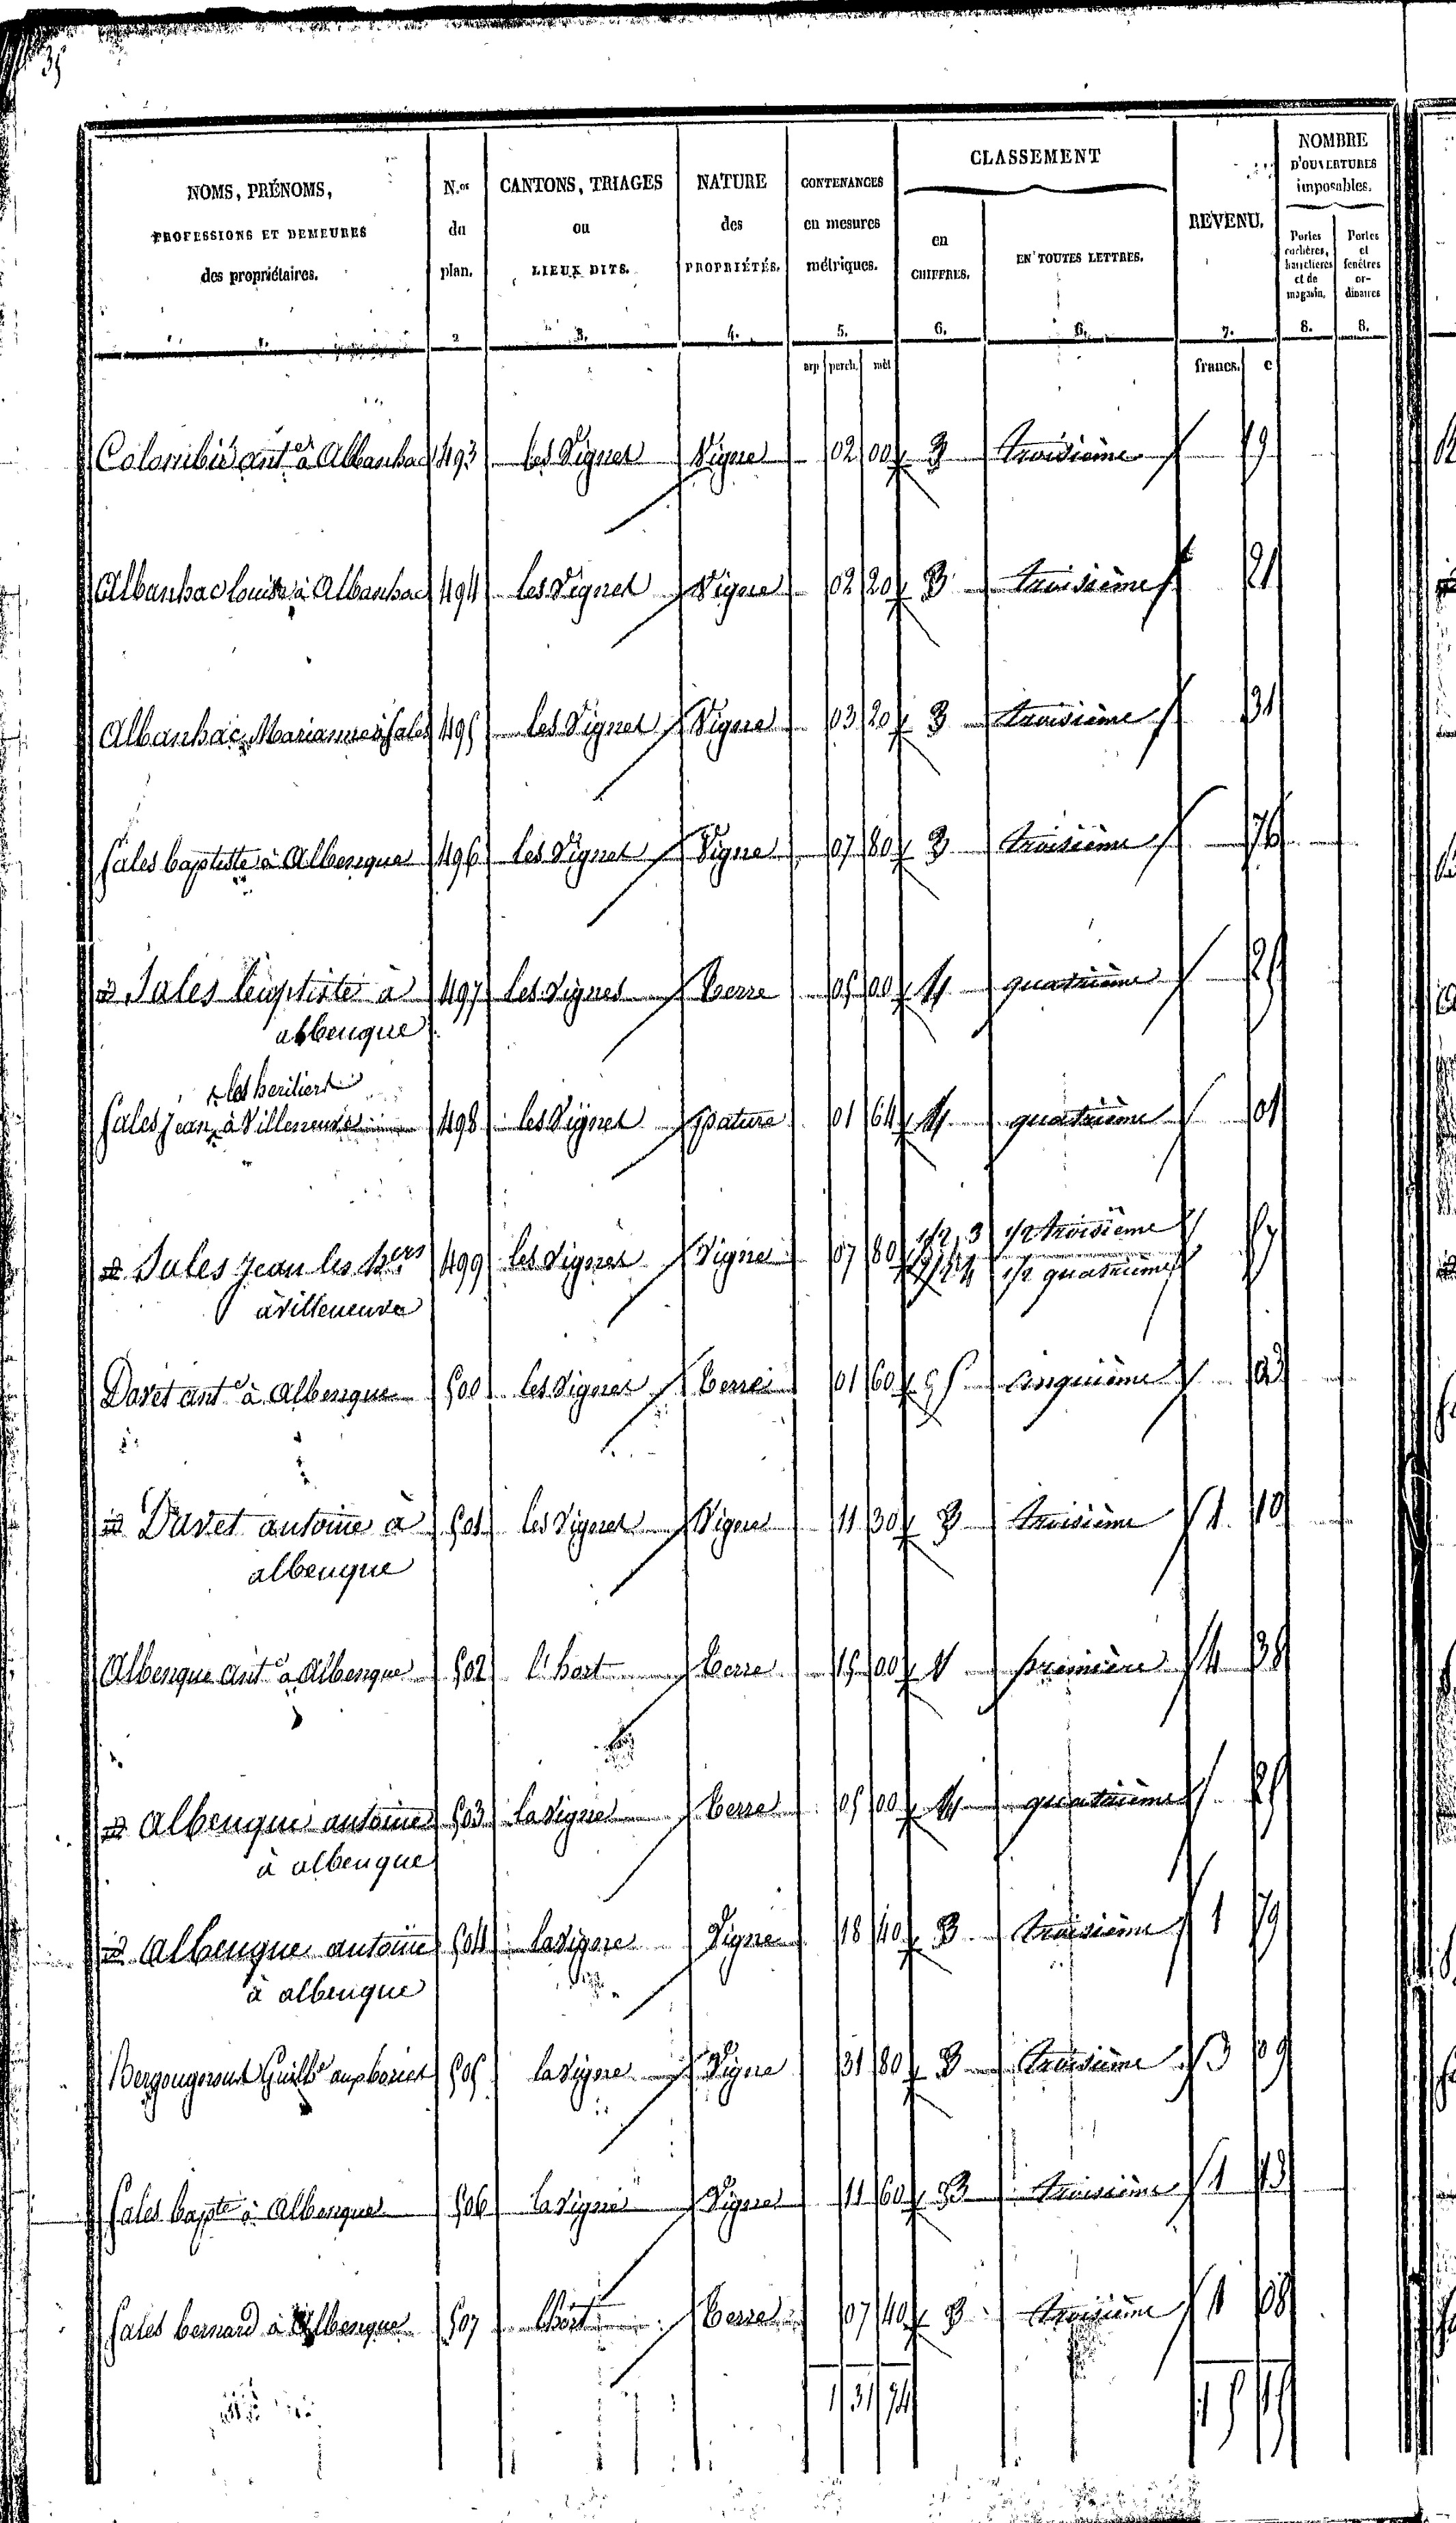 35
NOMS, PRÉNOMS, PROFESSIONS ET DEMEURES des propriétaires. 1.
N.os du plan. 2
CANTONS, TRIAGES ou LIEUX DITS. 3.
NATURE des PROPRIÉTÉS. 4.
CONTENANCES en mesures métriques. 5.
CLASSEMENT
en CHIFFRES. 6.
EN TOUTES LETTRES. 6.
REVENU. 7.
NOMBRE D'OUVERTURES imposables.
Portes cochères, et de magasin. 8.
Portes et fenêtres ordinaires 8.
arp perch. mèt francs. c
Colombié ant.e à Albanhac 493 les Vignes Vigne 02 00 3 troisième 19
Albanhac louise à Albanhac 494 les Vignes Vigne 02 20 3 troisième 21
Albanhac Marianne à Sales 495 les Vignes Vigne 03 20 3 troisième 31
Sales baptiste à Albenque 496 les Vignes Vigne 07 80 3 troisième 76
Sales baptiste à 497 les Vignes terre 05 00 4 quatrième 25
albenque
les heritiers
Sales Jean à Villeneuve 498 les Vignes pature 01 64 4 quatrième 01
Sales Jean les h.ers 499 les Vignes Vigne 07 80 1/2 3 1/2 troisième 57
à Villeneuve 1/2 4 1/2 quatrième
Davet ant.e à Albenque 500 les Vignes terre 01 60 5 Cinquième 03
Davet antoine à 501 les Vignes Vigne 11 30 3 troisième 1 10
albenque
Albenque ant.e à Albenque 502 l'hort terre 15 00 1 première 4 38
albenque antoine 503 la Vigne terre 05 00 4 quatrième 25
à albenque
albenque antoine 504 la Vigne Vigne 18 40 3 troisième 1 79
à albenque
Bergougnoux Guill.e aux bories 505 la Vigne Vigne 31 80 3 troisième 3 09
Sales bapt.e à Albenque 506 la Vigne Vigne 11 60 3 troisième 1 13
Sales bernard à Albenque 507 l'hort terre 07 40 3 troisième 1 08
1 31 74 15 15